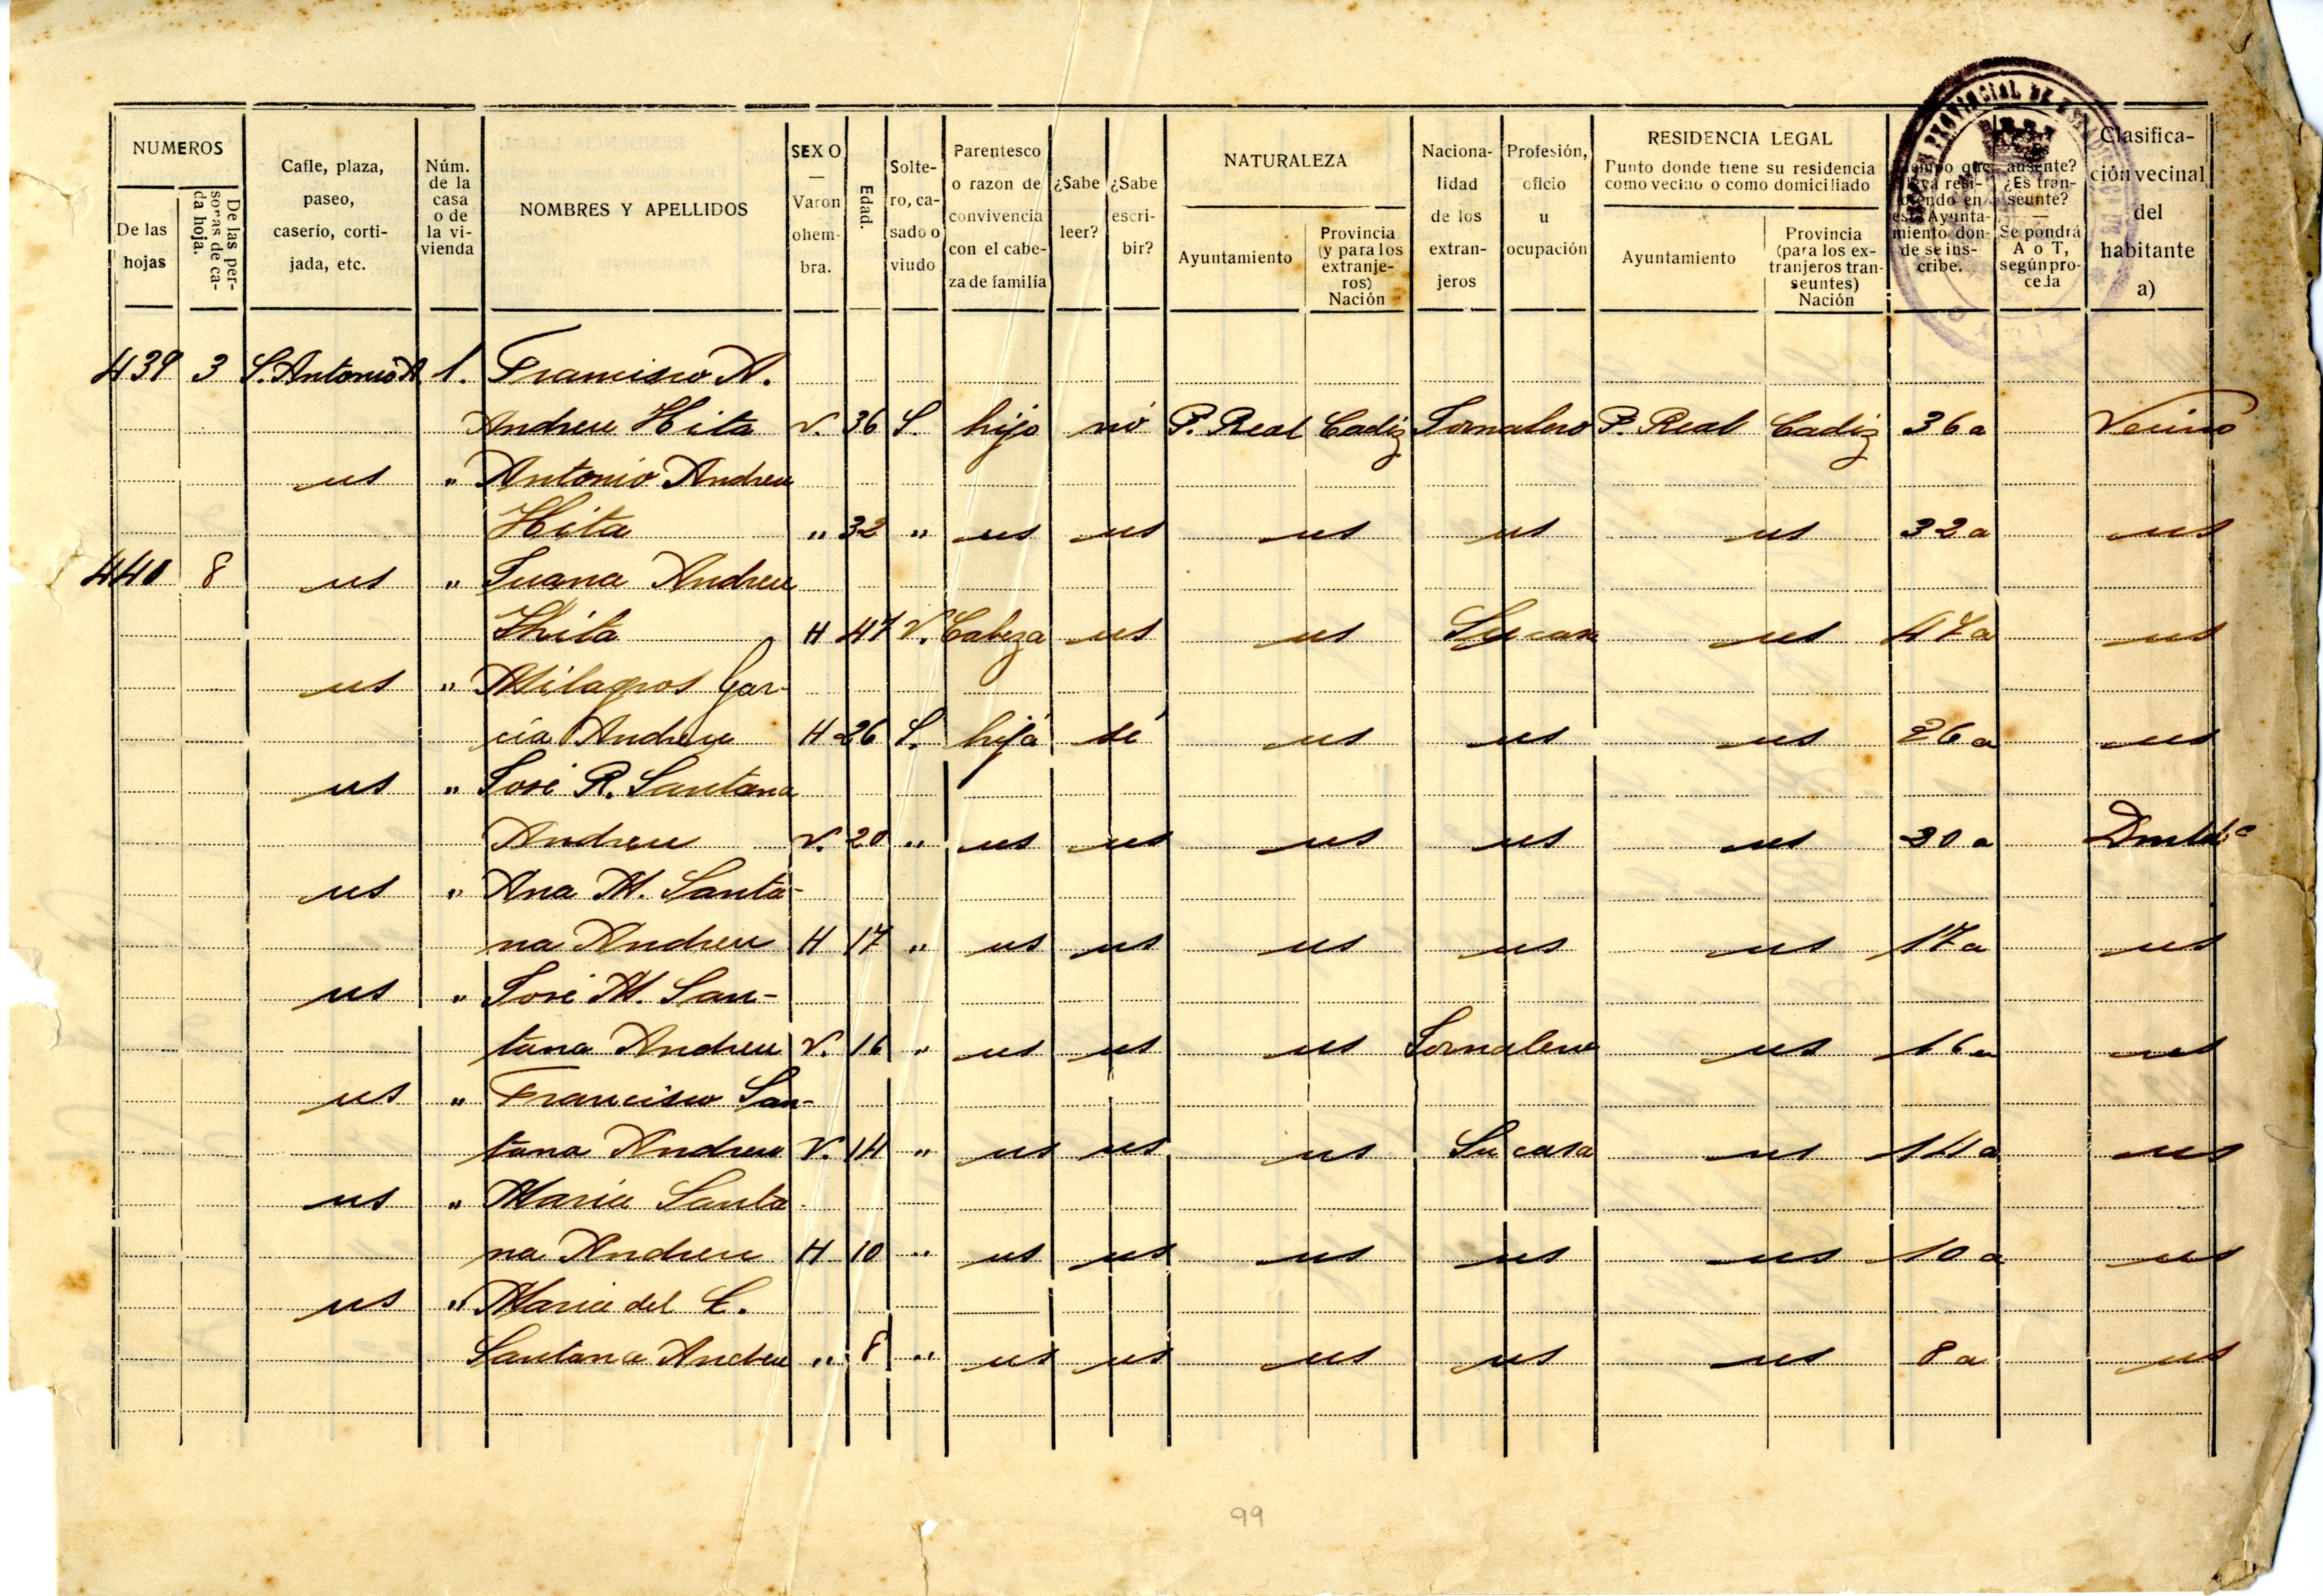 NUMEROS
De las hojas
De las personas de cada hoja.
Calle, plaza, paseo, caserío, cortijada, etc.
Núm. de la casa o de la vivienda
NOMBRES Y APELLIDOS
SEXO — Varon o hembra.
Edad.
Soltero, casado o viudo
Parentesco o razon de convivencia con el cabeza de familia
¿Sabe leer?
¿Sabe escribir?
NATURALEZA
Ayuntamiento
Provincia (y para los extranjeros) Nación
Nacionalidad de los extranjeros
Profesión, oficio u ocupación
RESIDENCIA LEGAL
Punto donde tiene su residencia como vecino o como domiciliado
Ayuntamiento
Provincia (para los extranjeros transeuntes) Nación
Tiempo que lleva residiendo en este Ayuntamiento donde se inscribe.
ausente? ¿Es transeunte? — Se pondrá A o T, según proceda
Clasificación vecinal del habitante a)
PROVINCIAL DE
439 3 S. Antonio A 1. Francisco A.
Andreu Hita V. 36 S. hijo nó P. Real Cadiz Jornalero P. Real Cadiz 36 a Vecino
us " Antonio Andreu
Hita " 32 " us us us us us 32 a us
440 8 us " Juana Andreu
Hita H 47 V. Cabeza us us Su casa us 47 a us
us " Milagros Gar-
cía Andreu H 26 S. hija sé us us us 26 a us
us " José R. Santana
Andreu V. 20 " us us us us us 20 a
us " Ana M. Santa-
na Andreu H 17 " us us us us us 17 a us
us " José M. San-
tana Andreu V. 16 " us us us Jornalero us 16 a us
us " Francisco San-
tana Andreu V. 14 " us us us Su casa us 14 a us
us " Maria Santa-
na Andreu H 10 " us us us us us 10 a us
us " Maria del C.
Santana Andreu " 8 " us us us us us 8 a us
99